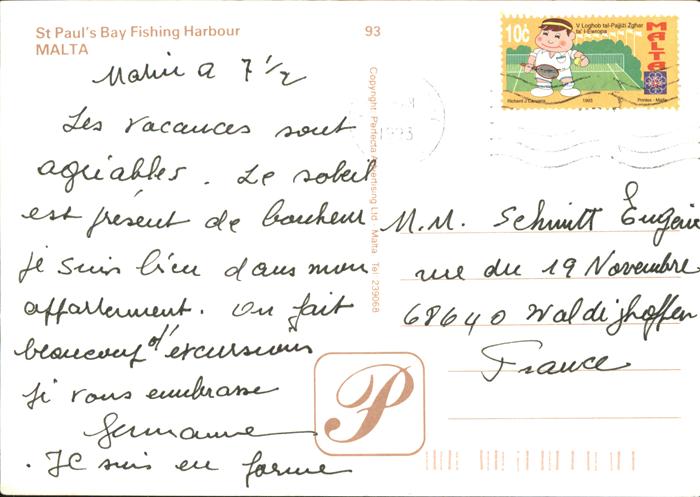 St Paul's Bay Fishing Harbour
MALTA
93
10c
V Loghob tal-Pajjiżi Żgħar
ta' l-Ewropa
MALTA
1993
Printex - Malta
1993
Copyright Perfecta Advertising Ltd. Malta Tel 239068
a 7 1/2
Les vacances sont
agréables. Le soleil
est présent de bonheur
je suis bien dans mon
appartement. On fait
beaucoup d'excursions
Je vous embrasse
Germanne
. Je suis en forme
M.M. Schmitt Eugène
rue du 19 Novembre
68640 Waldighoffen
France
P